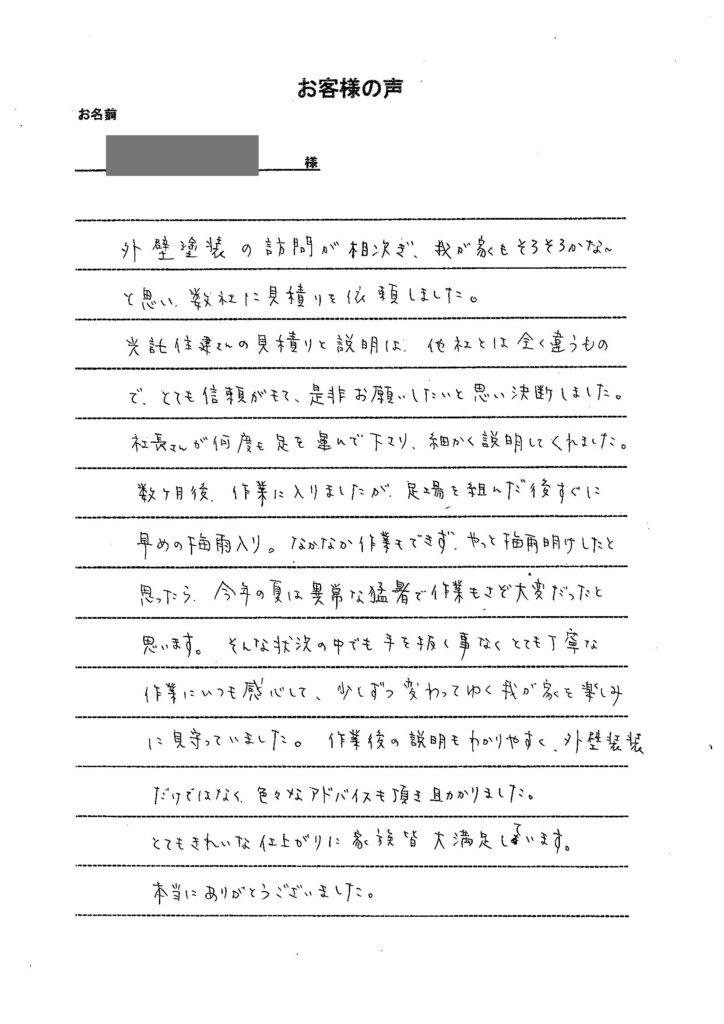 お客様の声
お名前
様
外壁塗装の訪問が相次ぎ、我が家もそろそろかな〜
と思い、数社に見積りを依頼しました。
光託住建さんの見積りと説明は、他社とは全く違うもの
で、とても信頼がもて、是非お願いしたいと思い決断しました。
社長さんが何度も足を運んで下さり、細かく説明してくれました。
数ヶ月後、作業に入りましたが、足場を組んだ後すぐに
早めの梅雨入り。なかなか作業もできず、やっと梅雨明けしたと
思ったら、今年の夏は異常な猛暑で作業もさぞ大変だったと
思います。そんな状況の中でも手を抜く事なくとても丁寧な
作業にいつも感心して、少しずつ変わってゆく我が家を楽しみ
に見守っていました。作業後の説明もわかりやすく、外壁装装
だけではなく、色々なアドバイスも頂き助かりました。
とてもきれいな仕上がりに家族皆大満足しています。
本当にありがとうございました。